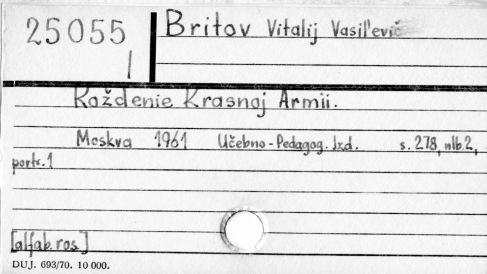 25055
1
Britov Vitalij Vasil'evič
Roždenie Krasnoj Armii.
Moskva 1961 Učebno-Pedagog. Izd. s. 278, nlb. 2,
portr. 1
[alfab. ros.]
DUJ. 693/70. 10 000.